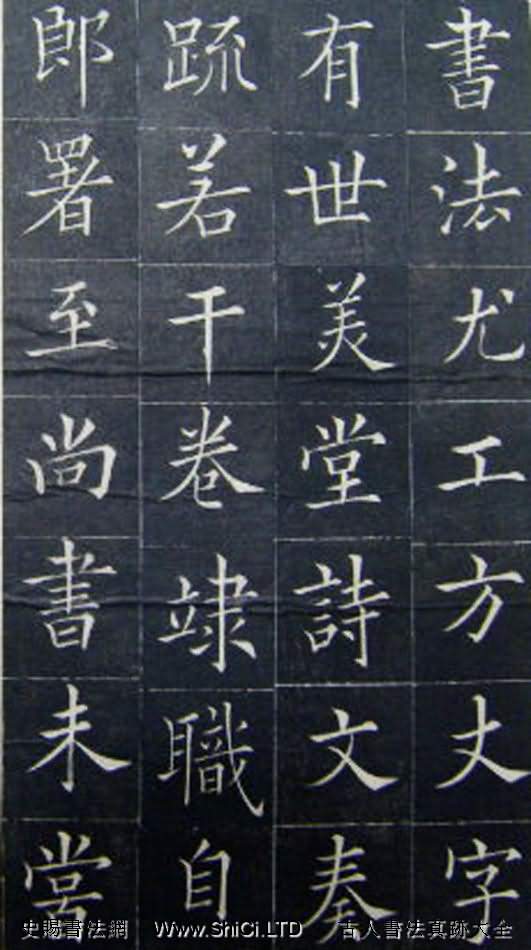 書法尤工方丈字
有世美堂詩文奏
疏若干卷竦職自
郎署至尚書未嘗
史賜書法網 www.ShiCi.LTD 古人書法真跡大全